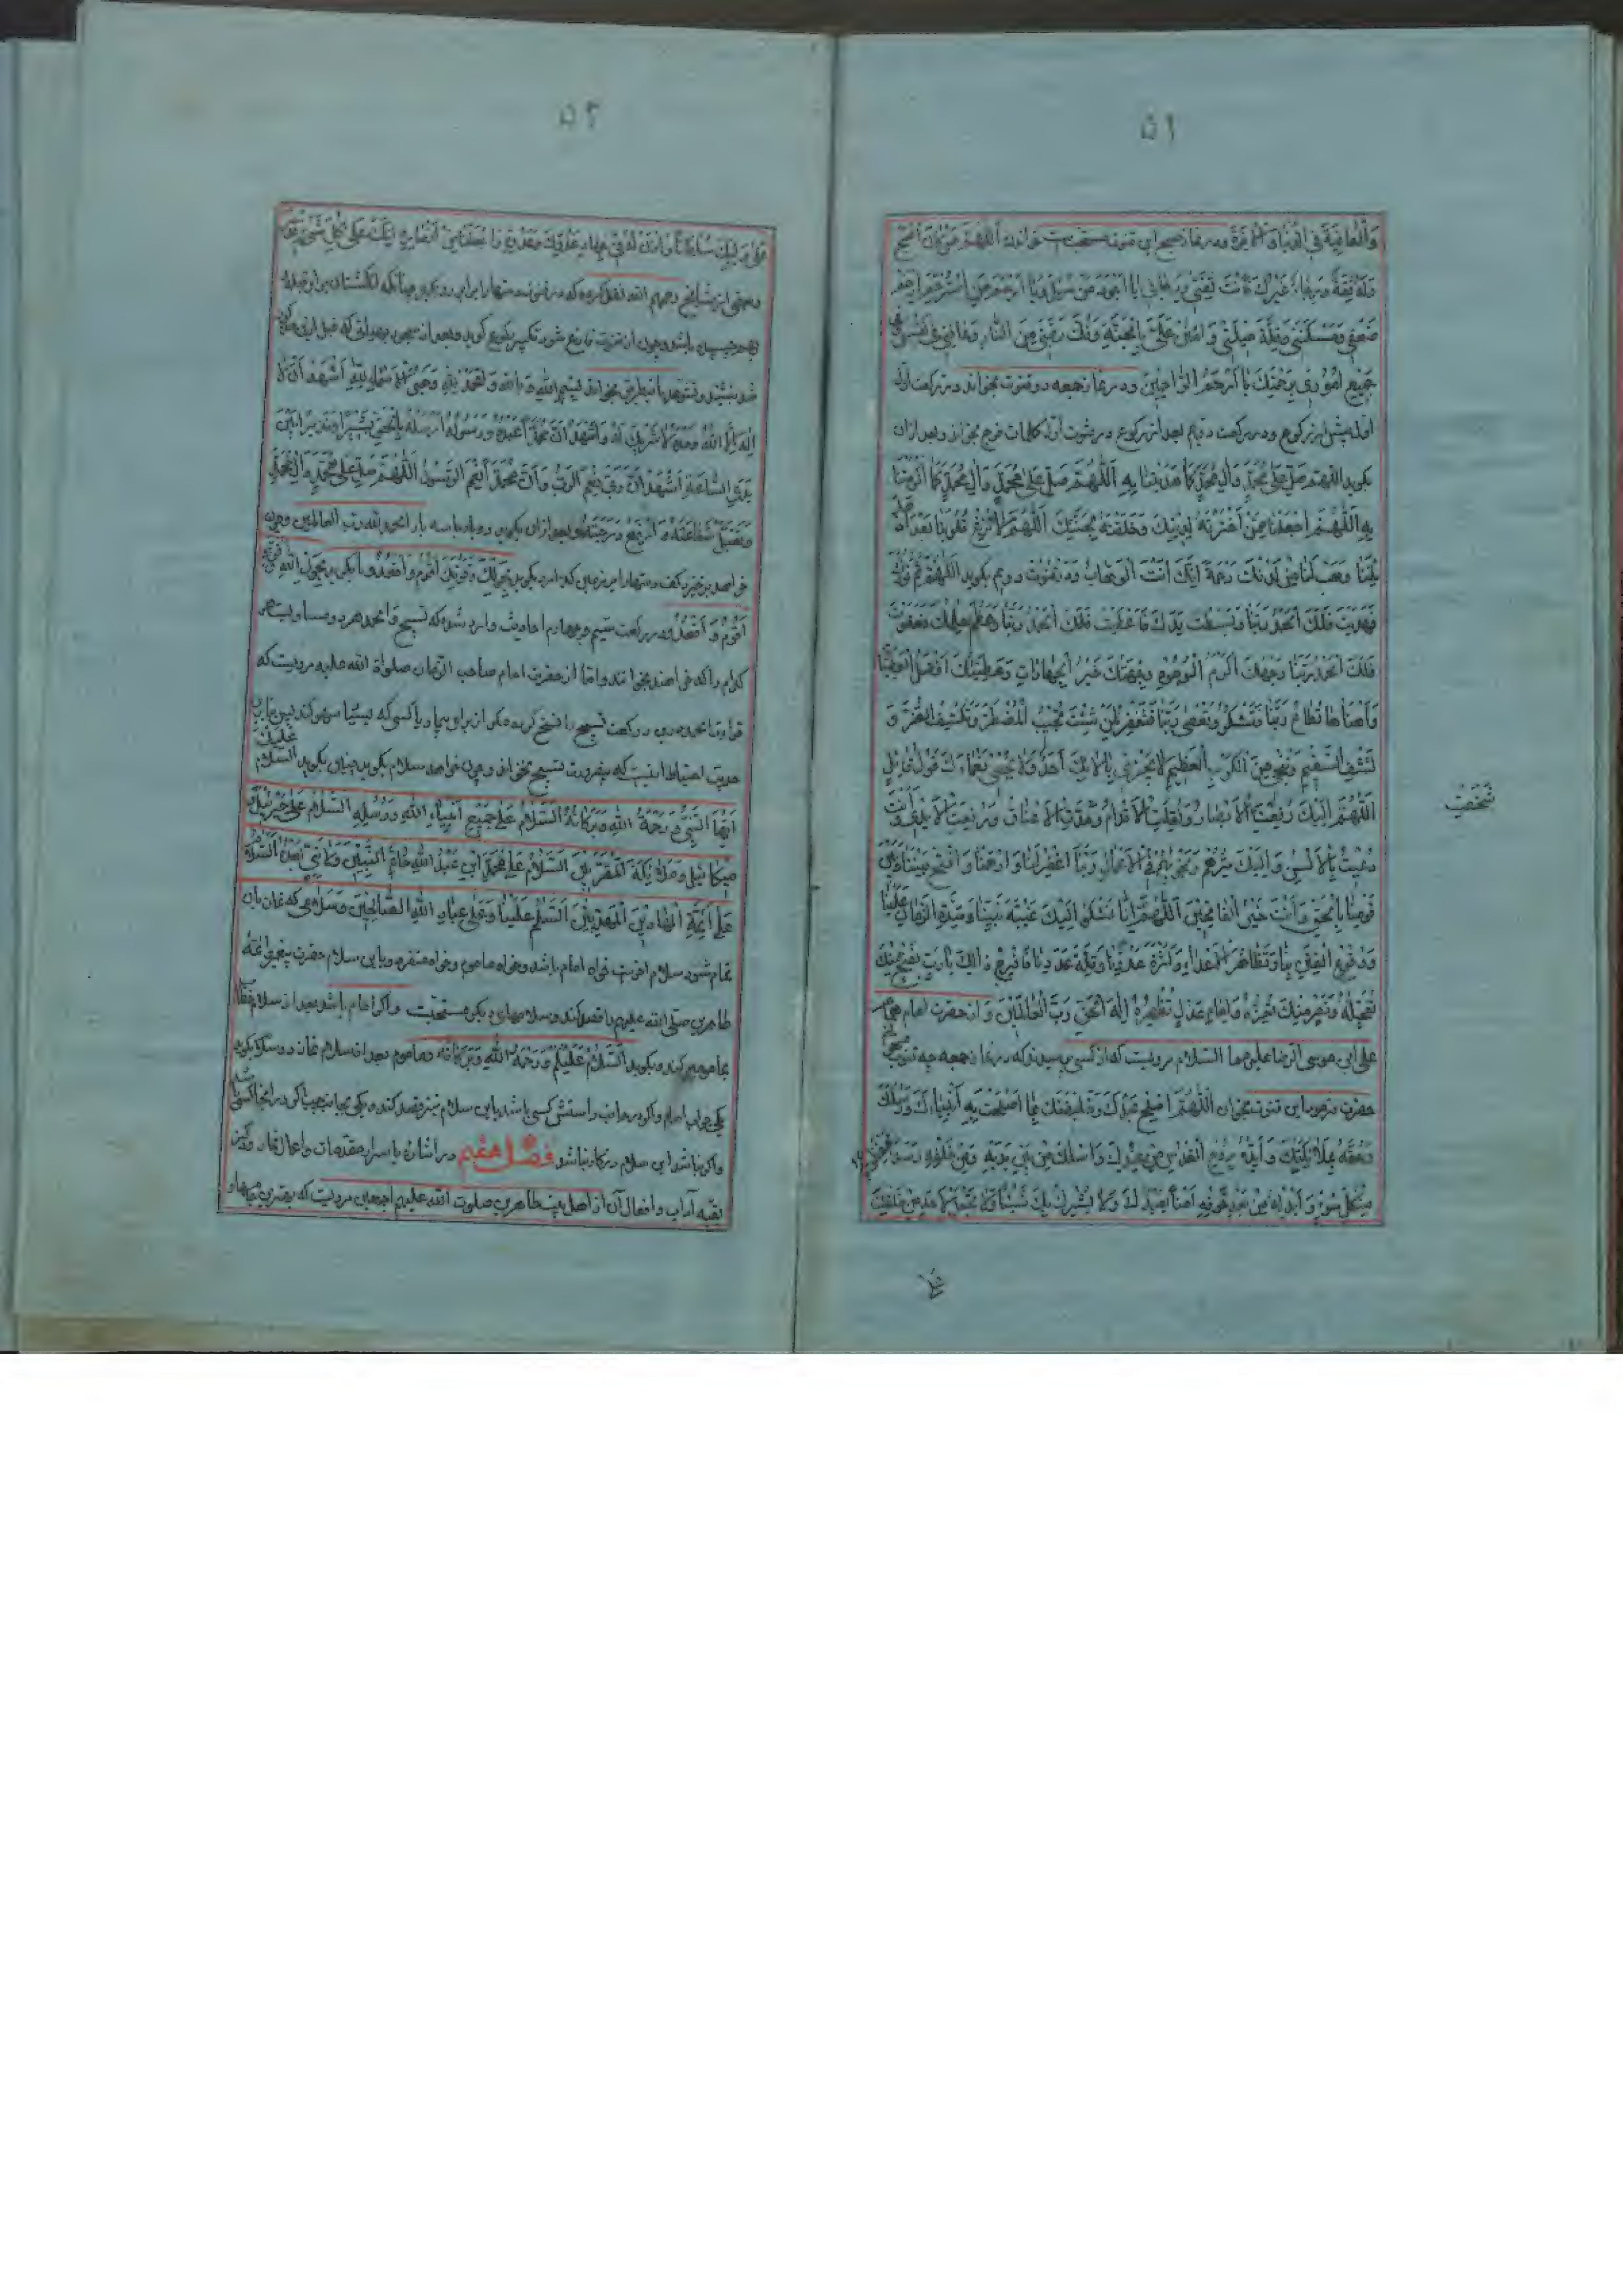 ۵۱
وَالْعَافِيَةَ فِي الدُّنْيَا وَالْآخِرَةِ ودر نماز صبح این قنوت مستحبست خواندن اَللّٰهُمَّ مَنْ كَانَ أَصْبَحَ
وَلَهُ ثِقَةٌ وَرَجَاءٌ غَيْرُكَ فَأَنْتَ ثِقَتِي وَرَجَائِي يَا أَجْوَدَ مَنْ سُئِلَ وَيَا أَرْحَمَ مَنِ اسْتُرْحِمَ ارْحَمْ
ضَعْفِي وَمَسْكَنَتِي وَقِلَّةَ حِيلَتِي وَامْنُنْ عَلَيَّ بِالْجَنَّةِ وَفُكَّ رَقَبَتِي مِنَ النَّارِ وَعَافِنِي فِي نَفْسِي وَفِي
جَمِيعِ أُمُورِي بِرَحْمَتِكَ يَا أَرْحَمَ الرَّاحِمِينَ ودر نماز جمعه دو قنوت بخواند در رکعت اول
اول پیش از رکوع ودر رکعت دویم بعد از رکوع در قنوت اول کلمات فرج بخواند وبعد ازان
بکوید اللهم صَلِّ عَلَى مُحَمَّدٍ وَآلِ مُحَمَّدٍ كَمَا هَدَيْتَنَا بِهِ اَللّٰهُمَّ صَلِّ عَلَى مُحَمَّدٍ وَآلِ مُحَمَّدٍ كَمَا أَكْرَمْتَنَا
بِهِ اَللّٰهُمَّ اجْعَلْنَا مِمَّنِ اخْتَرْتَهُ لِدِينِكَ وَخَلَقْتَهُ لِجَنَّتِكَ اَللّٰهُمَّ لَا تُزِغْ قُلُوبَنَا بَعْدَ إِذْ
هَدَيْتَنَا وَهَبْ لَنَا مِنْ لَدُنْكَ رَحْمَةً إِنَّكَ أَنْتَ الْوَهَّابُ ودر قنوت دویم بکوید اَللّٰهُمَّ تَمَّ نُورُكَ
فَهَدَيْتَ فَلَكَ الْحَمْدُ رَبَّنَا وَبَسَطْتَ يَدَكَ فَأَعْطَيْتَ فَلَكَ الْحَمْدُ رَبَّنَا وَعَظُمَ حِلْمُكَ فَعَفَوْتَ
فَلَكَ الْحَمْدُ رَبَّنَا وَجْهُكَ أَكْرَمُ الْوُجُوهِ وَجِهَتُكَ خَيْرُ الْجِهَاتِ وَعَطِيَّتُكَ أَفْضَلُ الْعَطِيَّاتِ
وَأَهْنَأُهَا تُطَاعُ رَبَّنَا فَتَشْكُرُ وَتُعْصَى رَبَّنَا فَتَغْفِرُ لِمَنْ شِئْتَ تُجِيبُ الْمُضْطَرَّ وَتَكْشِفُ الضُّرَّ وَ
تَشْفِي السَّقِيمَ وَتُنْجِي مِنَ الْكَرْبِ الْعَظِيمِ لَا يَجْزِي بِآلَائِكَ أَحَدٌ وَلَا يُحْصِي نَعْمَاءَكَ قَوْلُ قَائِلٍ
اَللّٰهُمَّ إِلَيْكَ رُفِعَتِ الْأَبْصَارُ وَنُقِلَتِ الْأَقْدَامُ وَمُدَّتِ الْأَعْنَاقُ وَرُفِعَتِ الْأَيْدِي وَأَنْتَ
شَخَصَتْ
دُعِيتَ بِالْأَلْسُنِ وَإِلَيْكَ سِرُّهُمْ وَنَجْوَاهُمْ فِي الْأَعْمَالِ رَبَّنَا اغْفِرْ لَنَا وَارْحَمْنَا وَافْتَحْ بَيْنَنَا وَبَيْنَ
قَوْمِنَا بِالْحَقِّ وَأَنْتَ خَيْرُ الْفَاتِحِينَ اَللّٰهُمَّ إِنَّا نَشْكُو إِلَيْكَ غَيْبَةَ نَبِيِّنَا وَشِدَّةَ الزَّمَانِ عَلَيْنَا
وَوُقُوعَ الْفِتَنِ بِنَا وَتَظَاهُرَ الْأَعْدَاءِ وَكَثْرَةَ عَدُوِّنَا وَقِلَّةَ عَدَدِنَا فَافْرُجْ ذٰلِكَ يَا رَبِّ بِفَتْحٍ مِنْكَ
تُعَجِّلُهُ وَنَصْرٍ مِنْكَ تُعِزُّهُ وَإِمَامِ عَدْلٍ تُظْهِرُهُ إِلٰهَ الْحَقِّ رَبَّ الْعَالَمِينَ واز حضرت امام همام
علی ابن موسی الرضا علیهما السلام مرویست که از کسی پرسیدند که در نماز جمعه چه قنوت میخوانی
حضرت فرمود این قنوت بخوان اَللّٰهُمَّ أَصْلِحْ عَبْدَكَ وَخَلِيفَتَكَ بِمَا أَصْلَحْتَ بِهِ أَنْبِيَاءَكَ وَرُسُلَكَ
وَحُفَّهُ بِمَلَائِكَتِكَ وَأَيِّدْهُ بِرُوحِ الْقُدُسِ مِنْ عِنْدِكَ وَاسْلُكْهُ مِنْ بَيْنِ يَدَيْهِ وَمِنْ خَلْفِهِ رَصَدًا يَحْفَظُونَهُ
مِنْ كُلِّ سُوءٍ وَأَبْدِلْهُ مِنْ بَعْدِ خَوْفِهِ أَمْنًا يَعْبُدُكَ لَا يُشْرِكُ بِكَ شَيْئًا وَلَا تَجْعَلْ لِأَحَدٍ مِنْ خَلْقِكَ
۵۲
عَلَى وَلِيِّكَ سُلْطَانًا وَأْذَنْ لَهُ فِي جِهَادِ عَدُوِّكَ وَعَدُوِّهِ وَاجْعَلْنِي مِنْ أَنْصَارِهِ إِنَّكَ عَلَى كُلِّ شَيْءٍ قَدِيرٌ
وبعضی از مشایخ رحمهم الله نقل کرده که در قنوت دستها را برابر رو بکیرد چنانکه انکشتان برابر قبله
وبهم چسپیده باشد وچون از قنوت فارغ شود تکبیر رکوع کوید وبعد از سجود بهمان طریق که قبل ازین مذکور
شد بنشیند وتشهد باینطریق بخواند بِسْمِ اللهِ وَبِاللهِ وَالْحَمْدُ لِلّٰهِ وَخَيْرُ الْأَسْمَاءِ لِلّٰهِ أَشْهَدُ أَنْ لَا
إِلٰهَ إِلَّا اللهُ وَحْدَهُ لَا شَرِيكَ لَهُ وَأَشْهَدُ أَنَّ مُحَمَّدًا عَبْدُهُ وَرَسُولُهُ أَرْسَلَهُ بِالْحَقِّ بَشِيرًا وَنَذِيرًا بَيْنَ
يَدَيِ السَّاعَةِ أَشْهَدُ أَنَّ رَبِّي نِعْمَ الرَّبُّ وَأَنَّ مُحَمَّدًا نِعْمَ الرَّسُولُ اَللّٰهُمَّ صَلِّ عَلَى مُحَمَّدٍ وَآلِ مُحَمَّدٍ
وَتَقَبَّلْ شَفَاعَتَهُ وَارْفَعْ دَرَجَتَهُ وبعد ازان بکوید دوبار یا سه بار الحمد لله رب العالمین وچون
خواهد برخیزد کف دستها را بر زمین کذارد بکوید بِحَوْلِكَ وَقُوَّتِكَ أَقُومُ وَأَقْعُدُ ویا بکوید بِحَوْلِ اللهِ وَقُوَّتِهِ
أَقُومُ وَأَقْعُدُ ودر رکعت سیم وچهارم احادیث وارد شده که تسبیح والحمد هر دو مساویست هر
کدام را که خواهند بخوانند واما از حضرت امام صاحب الزمان صلواة الله علیه مرویست که
قرائت الحمد درین دو رکعت تسبیح را نسخ کرده مکر از برای بیمار یا کسی که بسیار سهو کند پس بنابرین
حدیث احتیاط اینست که بیضرورت تسبیح نخواند وچون خواهد سلام بکوید چنین بکوید السلام عَلَيْكَ
أَيُّهَا النَّبِيُّ وَرَحْمَةُ اللهِ وَبَرَكَاتُهُ اَلسَّلَامُ عَلَى جَمِيعِ أَنْبِيَاءِ اللهِ وَرُسُلِهِ اَلسَّلَامُ عَلَى جَبْرَئِيلَ وَ
مِيكَائِيلَ وَمَلَائِكَةِ الْمُقَرَّبِينَ اَلسَّلَامُ عَلَى مُحَمَّدِ ابْنِ عَبْدِ اللهِ خَاتَمِ النَّبِيِّينَ وَلَا نَبِيَّ بَعْدَهُ اَلسَّلَامُ
عَلَى أَئِمَّةِ الْهَادِينَ الْمَهْدِيِّينَ اَلسَّلَامُ عَلَيْنَا وَعَلَى عِبَادِ اللهِ الصَّالِحِينَ وسلامی که نماز باین
تمام شود سلام اخرست خواه امام باشد وخواه ماموم وخواه منفرد وباین سلام حضرت پیغمبر وائمه
طاهرین صلی الله علیهم را قصد کند وسلامهای دیکر مستحبّست واکر امام باشد بعد از سلام خطاب
بمامومین کند وبکوید اَلسَّلَامُ عَلَيْكُمْ وَرَحْمَةُ اللهِ وَبَرَكَاتُهُ وماموم بعد از سلام نماز دو سلام بکوید
یکی جواب امام واکر در جانب راستش کسی باشد باین سلام نیز قصد کند ویکی بجانب چپ اکر در انجا کسی باشد
واکر نباشد این سلام در کار نباشد فصل هفتم در اشاره باسرار مقدمات واعمال نماز وذکر
بقیه آداب وافعال آن از اهل بیت طاهرین صلوت الله علیهم اجمعین مرویست که بهترین چیزها